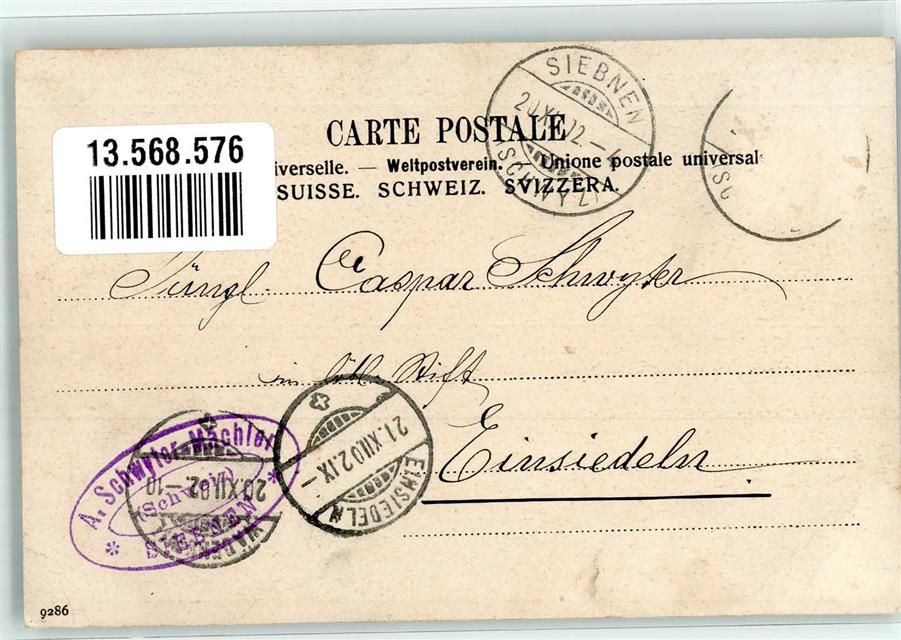 SIEBNEN
20.XII.02.-4
(SCHWYZ)
CARTE POSTALE
13.568.576
iverselle. — Weltpostverein. — Unione postale universal
SUISSE. SCHWEIZ. SVIZZERA.
Jüngl. Caspar Schwyter
in löbl. Stift
Einsiedeln
A. Schwyter-Mächler
(Schweiz)
* SIEBNEN *
20.XII.02.-10
21.XII.02.IX-
EINSIEDELN
9286